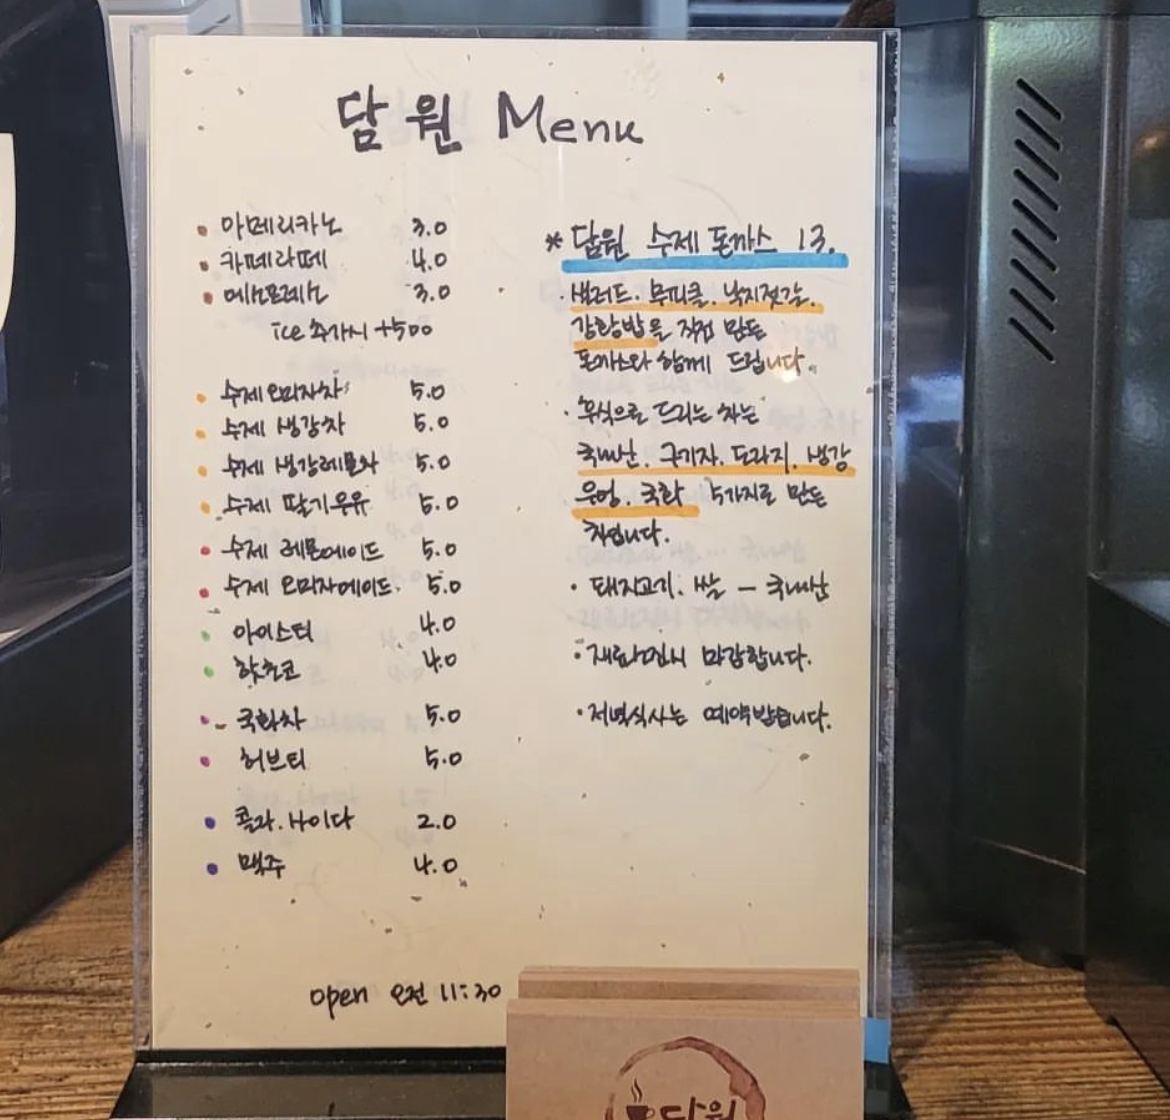 담원 Menu
아메리카노 3.0
카페라떼 4.0
에스프레소 3.0
ice 추가시 +500
수제 오미자차 5.0
수제 생강차 5.0
수제 생강레몬차 5.0
수제 딸기우유 5.0
수제 레몬에이드 5.0
수제 오미자에이드 5.0
아이스티 4.0
핫초코 4.0
국화차 5.0
허브티 5.0
콜라.사이다 2.0
맥주 4.0
open 오전 11:30
* 담원 수제 돈까스 13.
· 샐러드. 무피클. 낙지젓갈.
강황밥을 직접 만든
돈까스와 함께 드립니다.
· 후식으로 드리는 차는
국내산. 구기자. 도라지. 생강
우엉. 국화 5가지로 만든
차입니다.
· 돼지고기. 쌀 - 국내산
· 재료소진시 마감합니다.
· 저녁식사는 예약받습니다.
담원